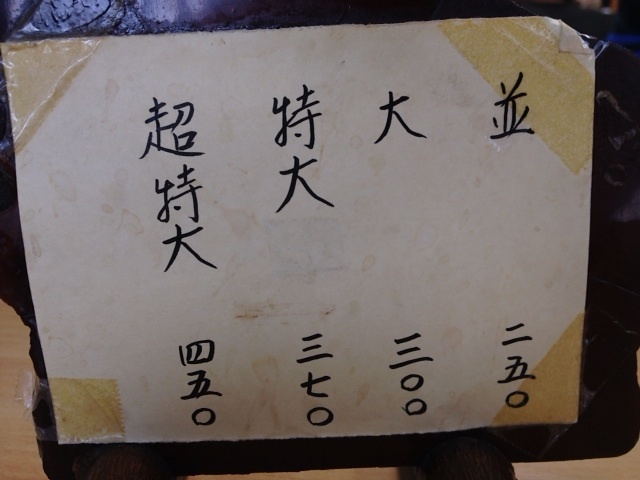 並 二五〇
大 三〇〇
特大 三七〇
超特大 四五〇